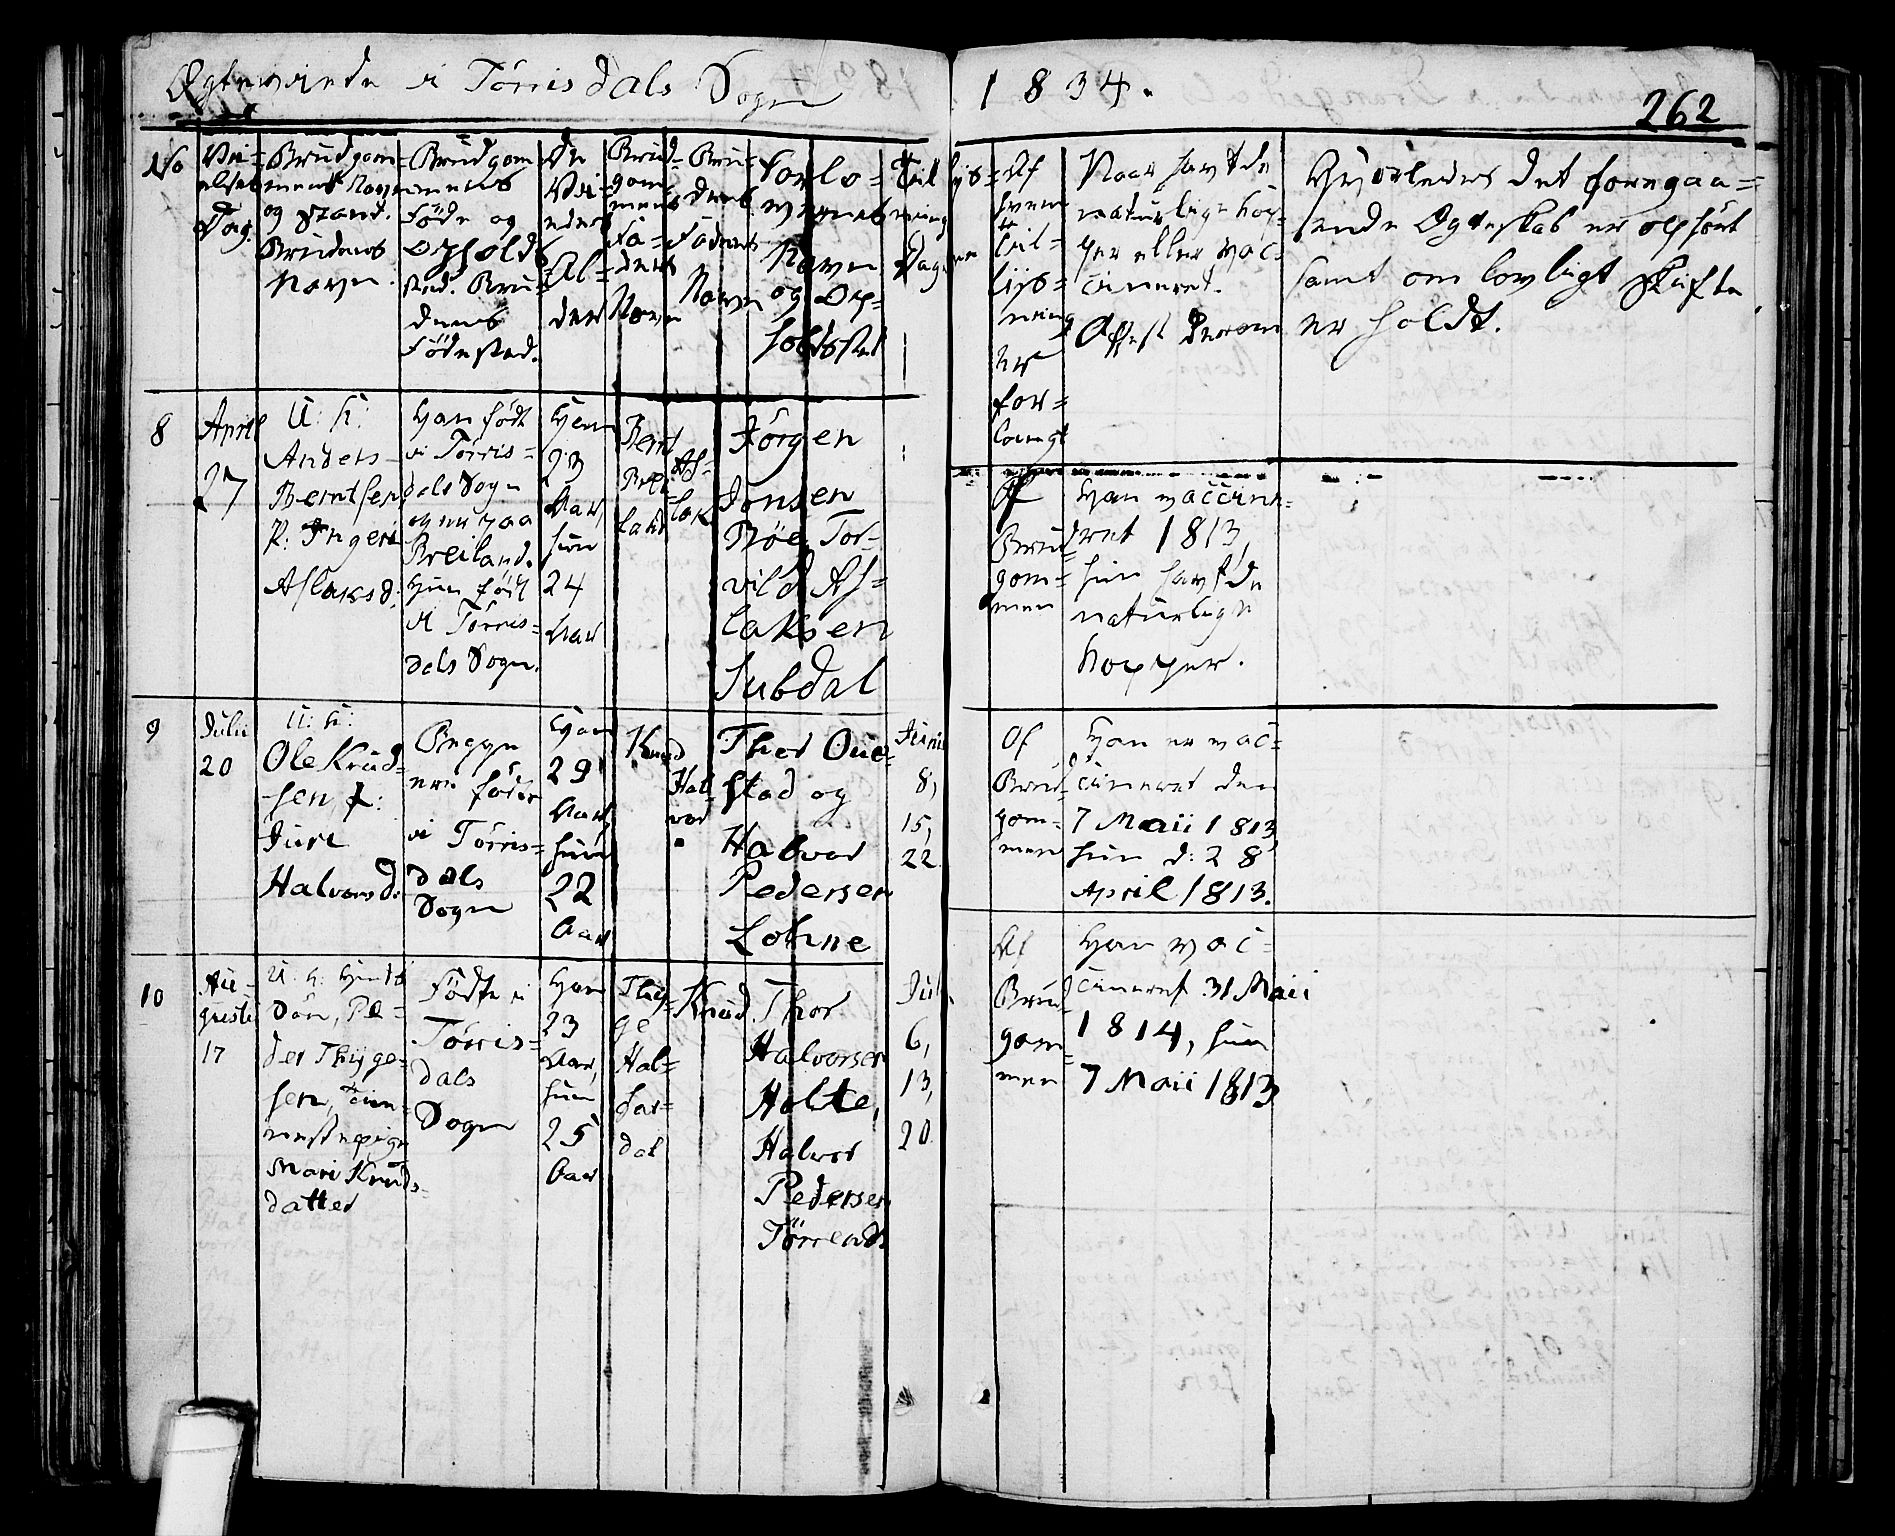 Ægteviede i Tørrisdals Sogn 1834.
262
No
Vielses Dag.
Brudgom=
mens Navn
og Stand.
Brudens
Navn.
Brudgom
mens
Føde og
Opholds
sted. Bru=
dens
Fødested.
De
Vi=
edes
Al=
der
Brud=
gom
mens
Fa=
ders
Navn
Bru=
dens
Faders
Navn
Forlo=
vernes
Navn
og Op=
holdsted
Til lys=
nings
Dagene
Af
hvem
Til=
lys=
ning
er
for=
langt
Naar havt de
naturlige Kop=
per eller vac=
cineret.
Attest derom
Hvorledes det foregaa=
ende Ægteskab er ophört
samt om lovligt Skifte
er holdt.
8
April
27
U: K:
Anders
Berntsen
P: Ingeri
Aslaksd.
Han født
i Tørris=
dals Sogn
og er paa
Breiland.
Hun født
i Tørris=
dals Sogn.
Han
23
Aar,
hun
24
Aar
Bernt
Brei
land
As=
lak
Jörgen
Jonsen
Böe, Tor-
vild As=
laksen
Subdal
Af
Brud
gom=
men
Han vaccine=
ret 1813,
hun havt de
naturlige
Kopper.
9
Julii
20
U: K:
Ole Knud=
sen, P:
Jure
Halvorsd.
Begge
ere fødte
i Tørris=
dals
Sogn
Han
29
Aar,
hun
22
Aar
Knud
Hal=
vor
Thor Oue-
stad og
Halvor
Pedersen
Lohne
Junii
8,
15,
22
Af
Brud
gom-
men
Han er vac=
cineret den
7 Maii 1813
hun d: 28
April 1813.
10
Au=
gusti
17
U: K:
Sön, Pe=
der Thyge=
sen, Tien=
nestepige
Mari Knuds=
datter
Födte i
Tørris=
dals
Sogn
Han
23
Aar,
hun
25
Aar
Thy=
ge
Hal=
far=
dal
Knud
Thor
Halvorsen
Holte,
Halvor
Pedersen
Törrends
Jul.
6,
13,
20
Af
Brud
gom=
men
Han vac=
cineret 31 Maii
1814, hun
7 Maii 1813